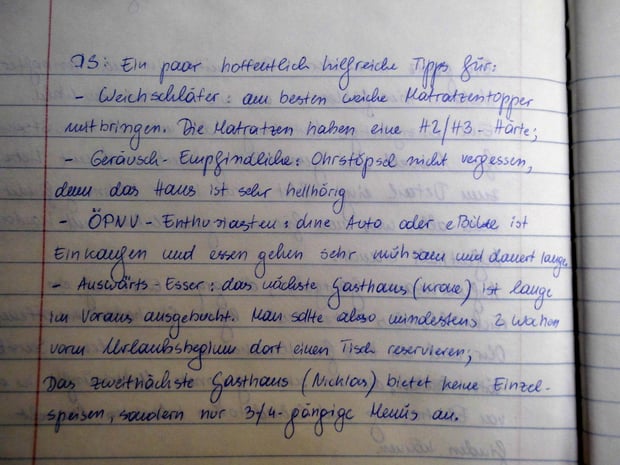 PS: Ein paar hoffentlich hilfreiche Tipps für:
- Weichschläfer: am besten weiche Matratzentopper
mitbringen. Die Matratzen haben eine H2/H3-Härte;
- Geräusch-Empfindliche: Ohrstöpsel nicht vergessen,
denn das Haus ist sehr hellhörig
- ÖPNV-Enthusiasten: ohne Auto oder eBike ist
Einkaufen und essen gehen sehr mühsam und dauert lange
- Auswärts-Esser: das nächste Gasthaus (Krone) ist lange
im Voraus ausgebucht. Man sollte also mindestens 2 Wochen
vorm Urlaubsbeginn dort einen Tisch reservieren;
Das zweitnächste Gasthaus (Nicklas) bietet keine Einzel-
speisen, sondern nur 3/4-gängige Menüs an.